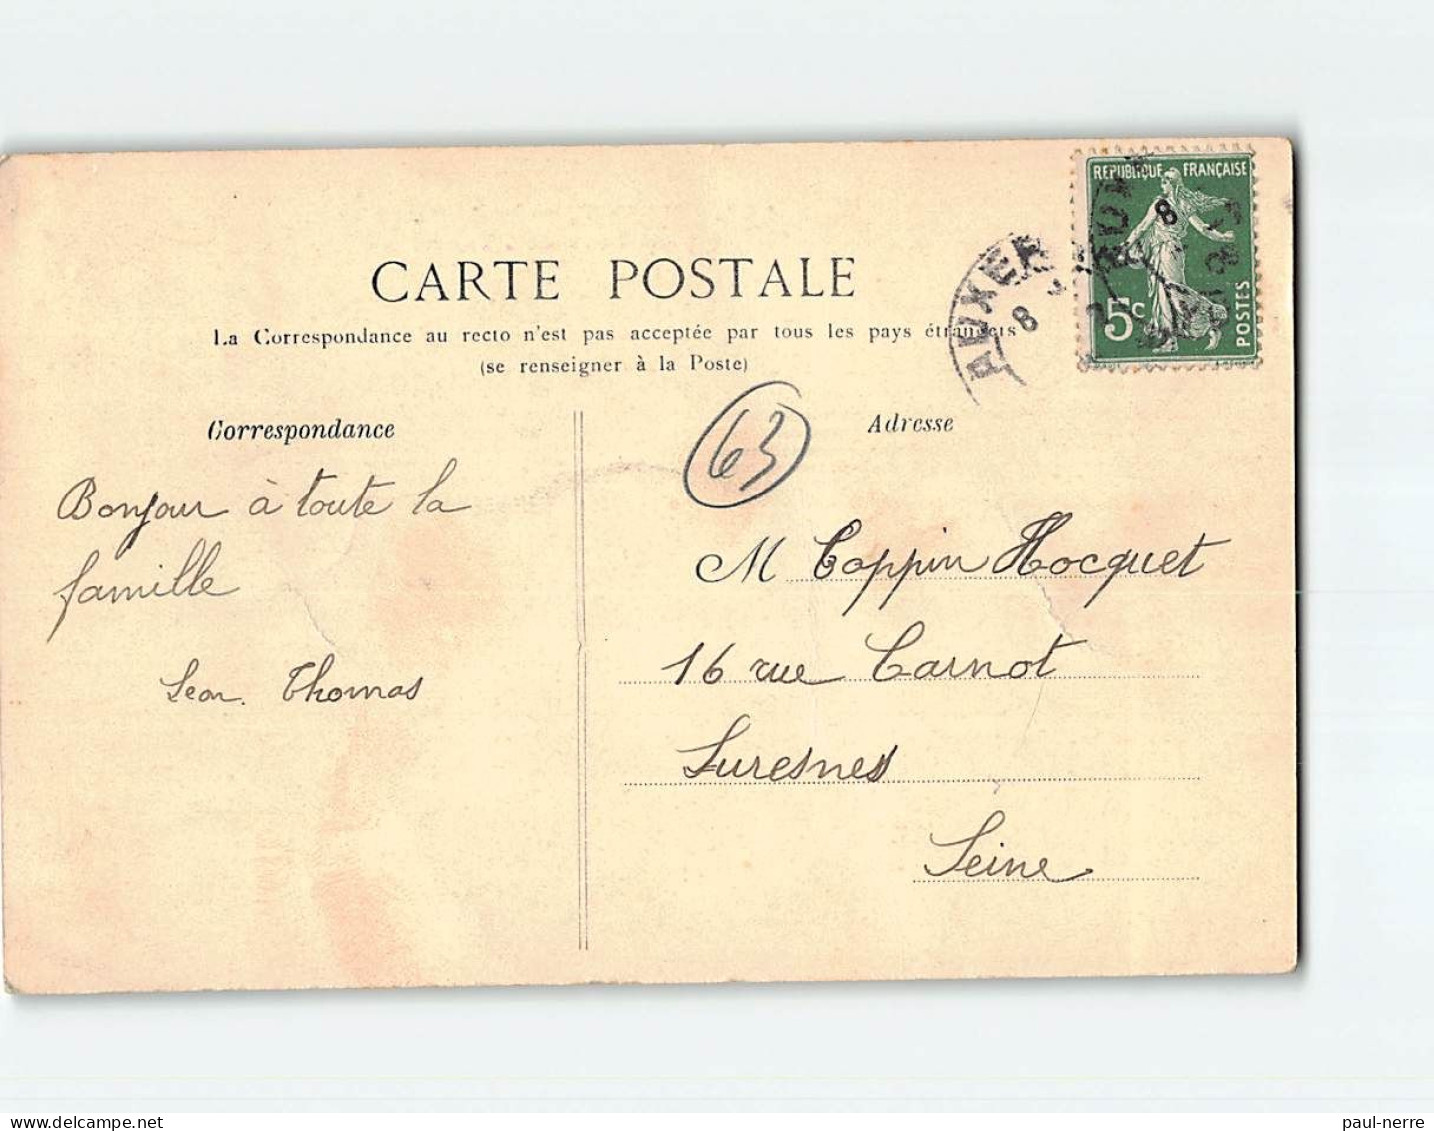 CARTE POSTALE
La Correspondance au recto n'est pas acceptée par tous les pays étrangers
(se renseigner à la Poste)
Correspondance
Bonjour à toute la
famille
Thomas
Adresse
63
M Coppin Hocquet
16 rue Carnot
Suresnes
Seine
REPUBLIQUE FRANÇAISE
5c
POSTES
AUXER
8
8
paul-nerre